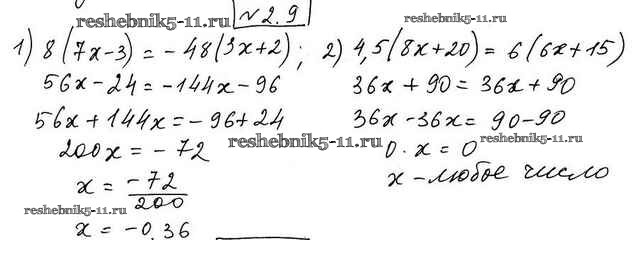 reshebnik5-11.ru
№ 2.9
1) 8(7x-3) = -48(3x+2);
56x-24 = -144x-96
56x+144x = -96+24
reshebnik5-11.ru
200x = -72
x = -72/200
reshebnik5-11.ru
x = -0.36
reshebnik5-11.ru
2) 4,5(8x+20) = 6(6x+15)
36x+90 = 36x+90
36x-36x = 90-90
reshebnik5-11.ru
0·x = 0
x - любое число